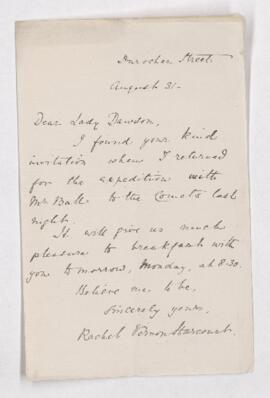 Durocher Street
August 31-
Dear Lady Dawson,
I found your kind
invitation when I returned
for the expedition with
Mr Ball to the Comets last
night.
It will give us much
pleasure to breakfast with
you tomorrow, Monday, at 8.30.
Believe me to be,
Sincerely yours,
Rachel Vernon Harcourt.